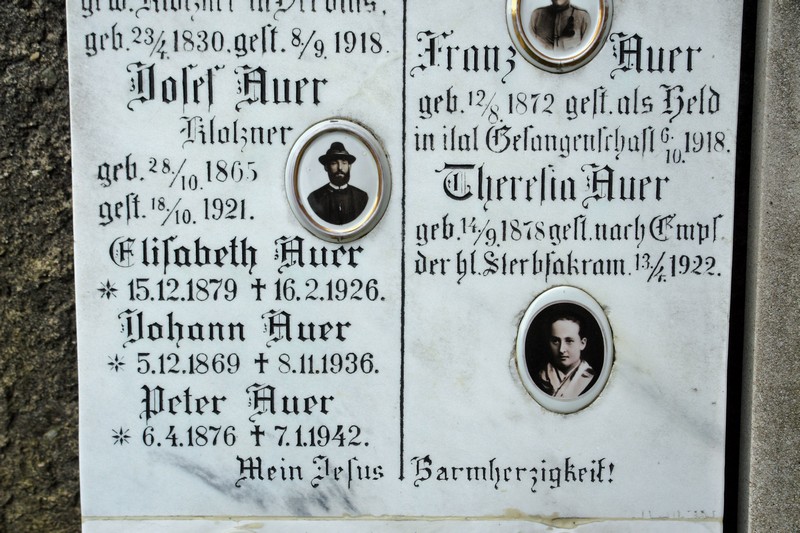 geb. 23/4. 1830. gest. 8/9. 1918.
Josef Auer
Klotzner
geb. 28/10. 1865
gest. 18/10. 1921.
Elisabeth Auer
* 15.12.1879 † 16.2.1926.
Johann Auer
* 5.12.1869 † 8.11.1936.
Peter Auer
* 6.4.1876 † 7.1.1942.
Franz Auer
geb. 12/8. 1872 gest. als Held
in ital Gefangenschaft 6/10. 1918.
Theresia Auer
geb. 14/9. 1878 gest. nach Empf.
der hl. Sterbsakram. 13/4. 1922.
Mein Jesus Barmherzigkeit!